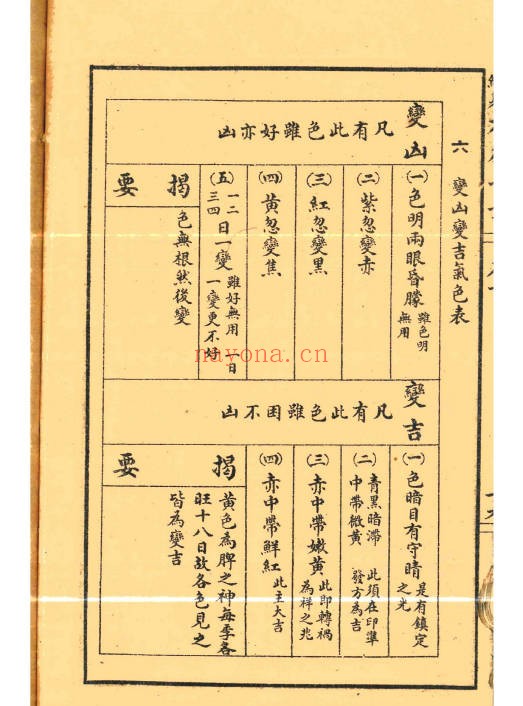 六 變凶變吉氣色表
變凶
凡有此色雖好亦凶
㈠色明兩眼昏朦 雖色明無用
㈡紫忽變赤
㈢紅忽變黑
㈣黃忽變焦
㈤一二日一變 雖好無用 一日
三四 一變更不好
揭要
色無根然後變
變吉
凡有此色雖困不凶
㈠色暗目有守晴 是有鎮定之光
㈡青黑暗滯 此須在印準
中帶微黃 發方為吉
㈢赤中帶嫩黃 此即轉禍為祥之兆
㈣赤中帶鮮紅 此主大吉
揭要
黃色為脾之神每季各
旺十八日故各色見之
皆為變吉
nayona.cn